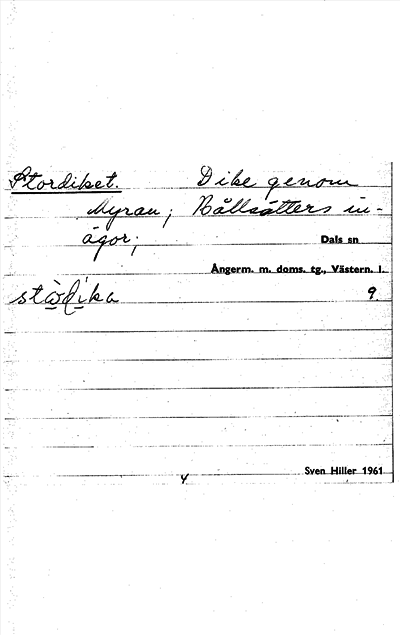 Stordiket. Dike genom
Myran; Rållsätters in-
ägor;
Dals sn
Ångerm. m. doms. tg., Västern. l.
9.
Sven Hiller 1961
4